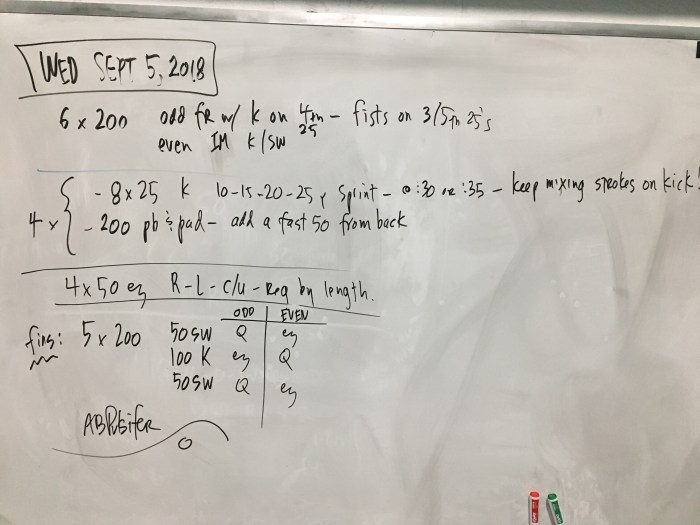 WED SEPT 5, 2018
6 x 200 odd FR w/ k on 4th 25 - fists on 3/5th 25's
even IM K/SW
4 x { - 8 x 25 K 10-15-20-25 y Sprint - @ :30 or :35 - keep mixing strokes on kick!
- 200 pb & pad - add a fast 50 from back
4 x 50 ez R-L-c/u-Reg by length.
ODD EVEN
fins: 5 x 200 50 SW Q ez
100 K ez Q
50 SW Q ez